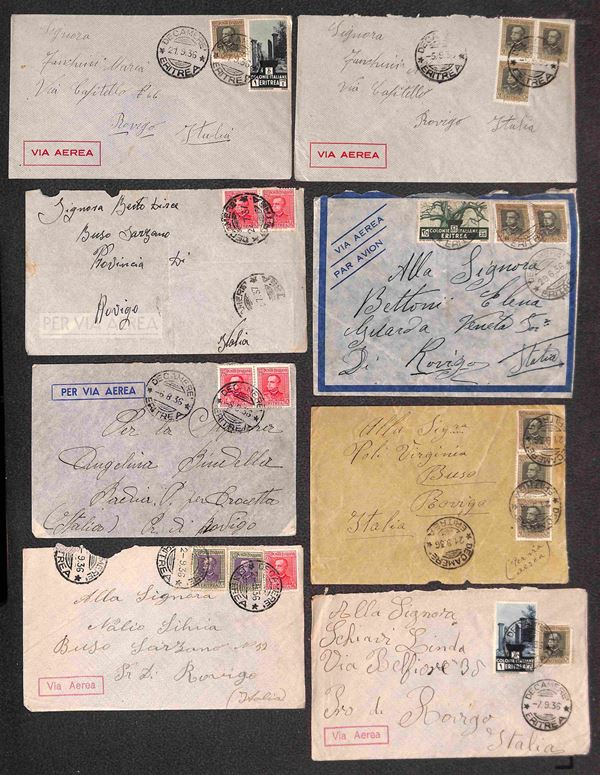 Signora
Zanchini Maria
Via Capitello
Rovigo
Italia
VIA AEREA
DECAMERE
21.9.36
ERITREA
COLONIE ITALIANE
ERITREA
Signora
Zanchini
Via Capitello
Rovigo
Italia
VIA AEREA
DECAMERE
ERITREA
Signora
Buso Sarzano
Provincia Di
Rovigo
Italia
PER VIA AEREA
VIA AEREA
PAR AVION
COLONIE ITALIANE
ERITREA
Alla Signora
Bettoni Elena
Guarda Veneta
Di Rovigo
Italia
PER VIA AEREA
DECAMERE
-6.8.36
ERITREA
Per la Signora
Angelina
(Italia) P. di Rovigo
Alla Sigra
Virginia
Buso
Rovigo
Italia
DECAMERE
21.9.36
ERITREA
(Per via
aerea)
Alla Signora
Nalio Silvia
Buso Sarzano
Pr. Di Rovigo
(Italia)
Via Aerea
-2.9.36
ERITREA
Alla Signora
Schiavi Linda
Via Belfiore 38
Pro di Rovigo
Italia
Via Aerea
COLONIE ITALIANE
ERITREA
DECAMERE
-7.9.36
ERITREA